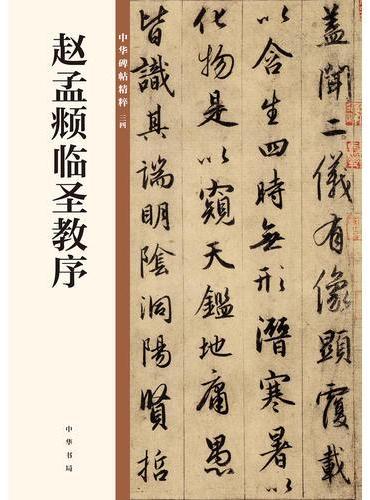 赵孟𫖯临圣教序
中华碑帖精粹 三四
中华书局
蓋聞二儀有像顯覆載
以含生四時無形潛寒暑以
化物是以窺天鑑地庸愚
皆識其端明陰洞陽賢哲